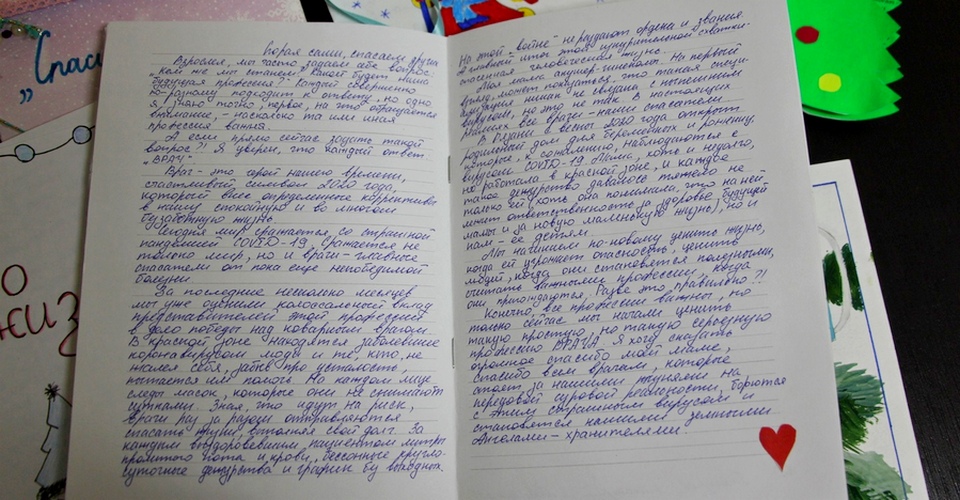 Спаси
"
О
ЖИЗ
Горая сами, спасаем других
Взрослея, мы часто задаём себе вопрос:
"кем же мы станем? Какой будет наша
будущая профессия?" Каждый совершенно
по-разному подходит к ответу, но одно
я знаю точно, первое, на что обращается
внимание, - насколько та или иная
профессия важна.
А если прямо сейчас задать такой
вопрос?! Я уверен, что каждый ответ
"ВРАЧ".
Врач - это герой нашего времени,
счастливый символ 2020 года,
который внёс определённые коррективы
в нашу спокойную и во многом
беззаботную жизнь.
Сегодня мир сражается со страшной
пандемией COVID-19, сражается не
только мир, но и врачи - главные
спасатели от пока ещё непобедимой
болезни.
За последние несколько месяцев
мы уже оценили колоссальный вклад
представителей этой профессии
в дело победы над коварным врагом.
В красной зоне находятся заболевшие
коронавирусом люди и те, кто, не
жалея себя, забыв про усталость,
пытается им помочь. На каждом лице
следы масок, которые они не снимают
сутками. Зная, что идут на риск,
врачи раз за разом отправляются
спасать жизни, выполняя свой долг. За
каждым выздоровевшим пациентом литры
пролитого пота и крови, бессонные кругло-
суточные дежурства и графики без выходных.
На этой "войне" не раздают ордена и звания.
А главный итог этой изнурительной схватки -
спасённая человеческая жизнь.
Моя мама акушер-гинеколог. На первый
взгляд может показаться, что такая специ-
альность никак не связана с нынешним
вирусом, но это не так. В настоящих
реалиях все врачи - наши спасатели.
В Рязани с весны 2020 года открыт
родильный дом для беременных и рожениц,
которые, к сожалению, наблюдаются с
вирусом COVID-19. Мама, хоть и недолго,
но работала в красной зоне, и каждое
такое дежурство давалось тяжело не
только ей (хоть она понимала, что на ней
лежит ответственность за здоровье будущей
мамы и за новую маленькую жизнь), но и
нам - её детям.
Мы начинаем по-новому ценить жизнь,
когда ей угрожает опасность, ценить
людей, когда они становятся полезными,
считать важными профессии, когда
они пригождаются. Разве это правильно?!
Конечно, все профессии важны, но
только сейчас мы начали ценить
такую простую, но такую серьёзную
профессию ВРАЧА. Я хочу сказать
огромное спасибо моей маме,
спасибо всем врачам, которые
стоят за нашими жизнями на
передовой суровой реальности, борются
с этим страшным вирусом и
становятся нашими земными
Ангелами-хранителями.